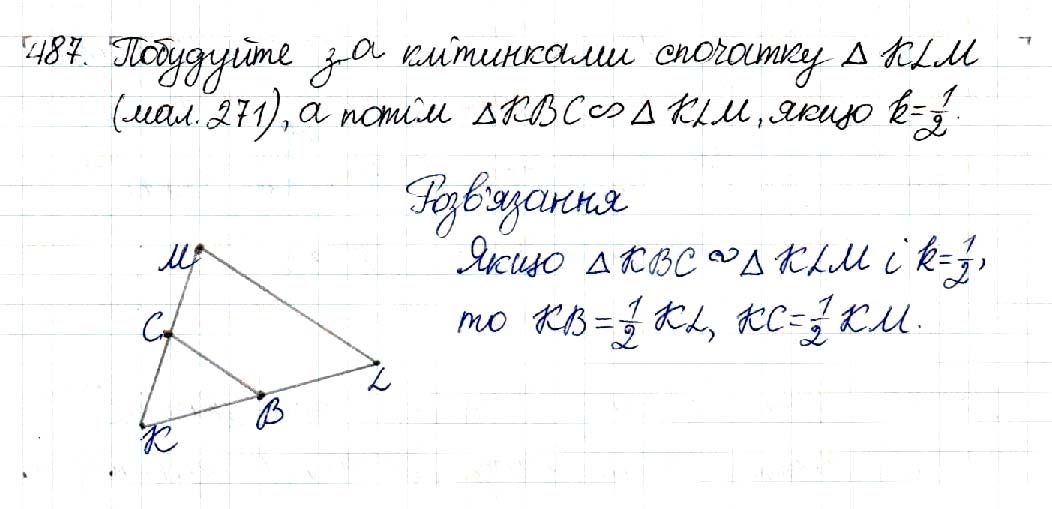 487. Побудуйте за клітинками спочатку △ KLM
(мал. 271), а потім △KBC ∽ △ KLM, якщо k=1/2.
Розв'язання
Якщо △ KBC ∽ △ KLM і k=1/2,
то KB = 1/2 KL, KC = 1/2 KM.
M
C
L
B
K